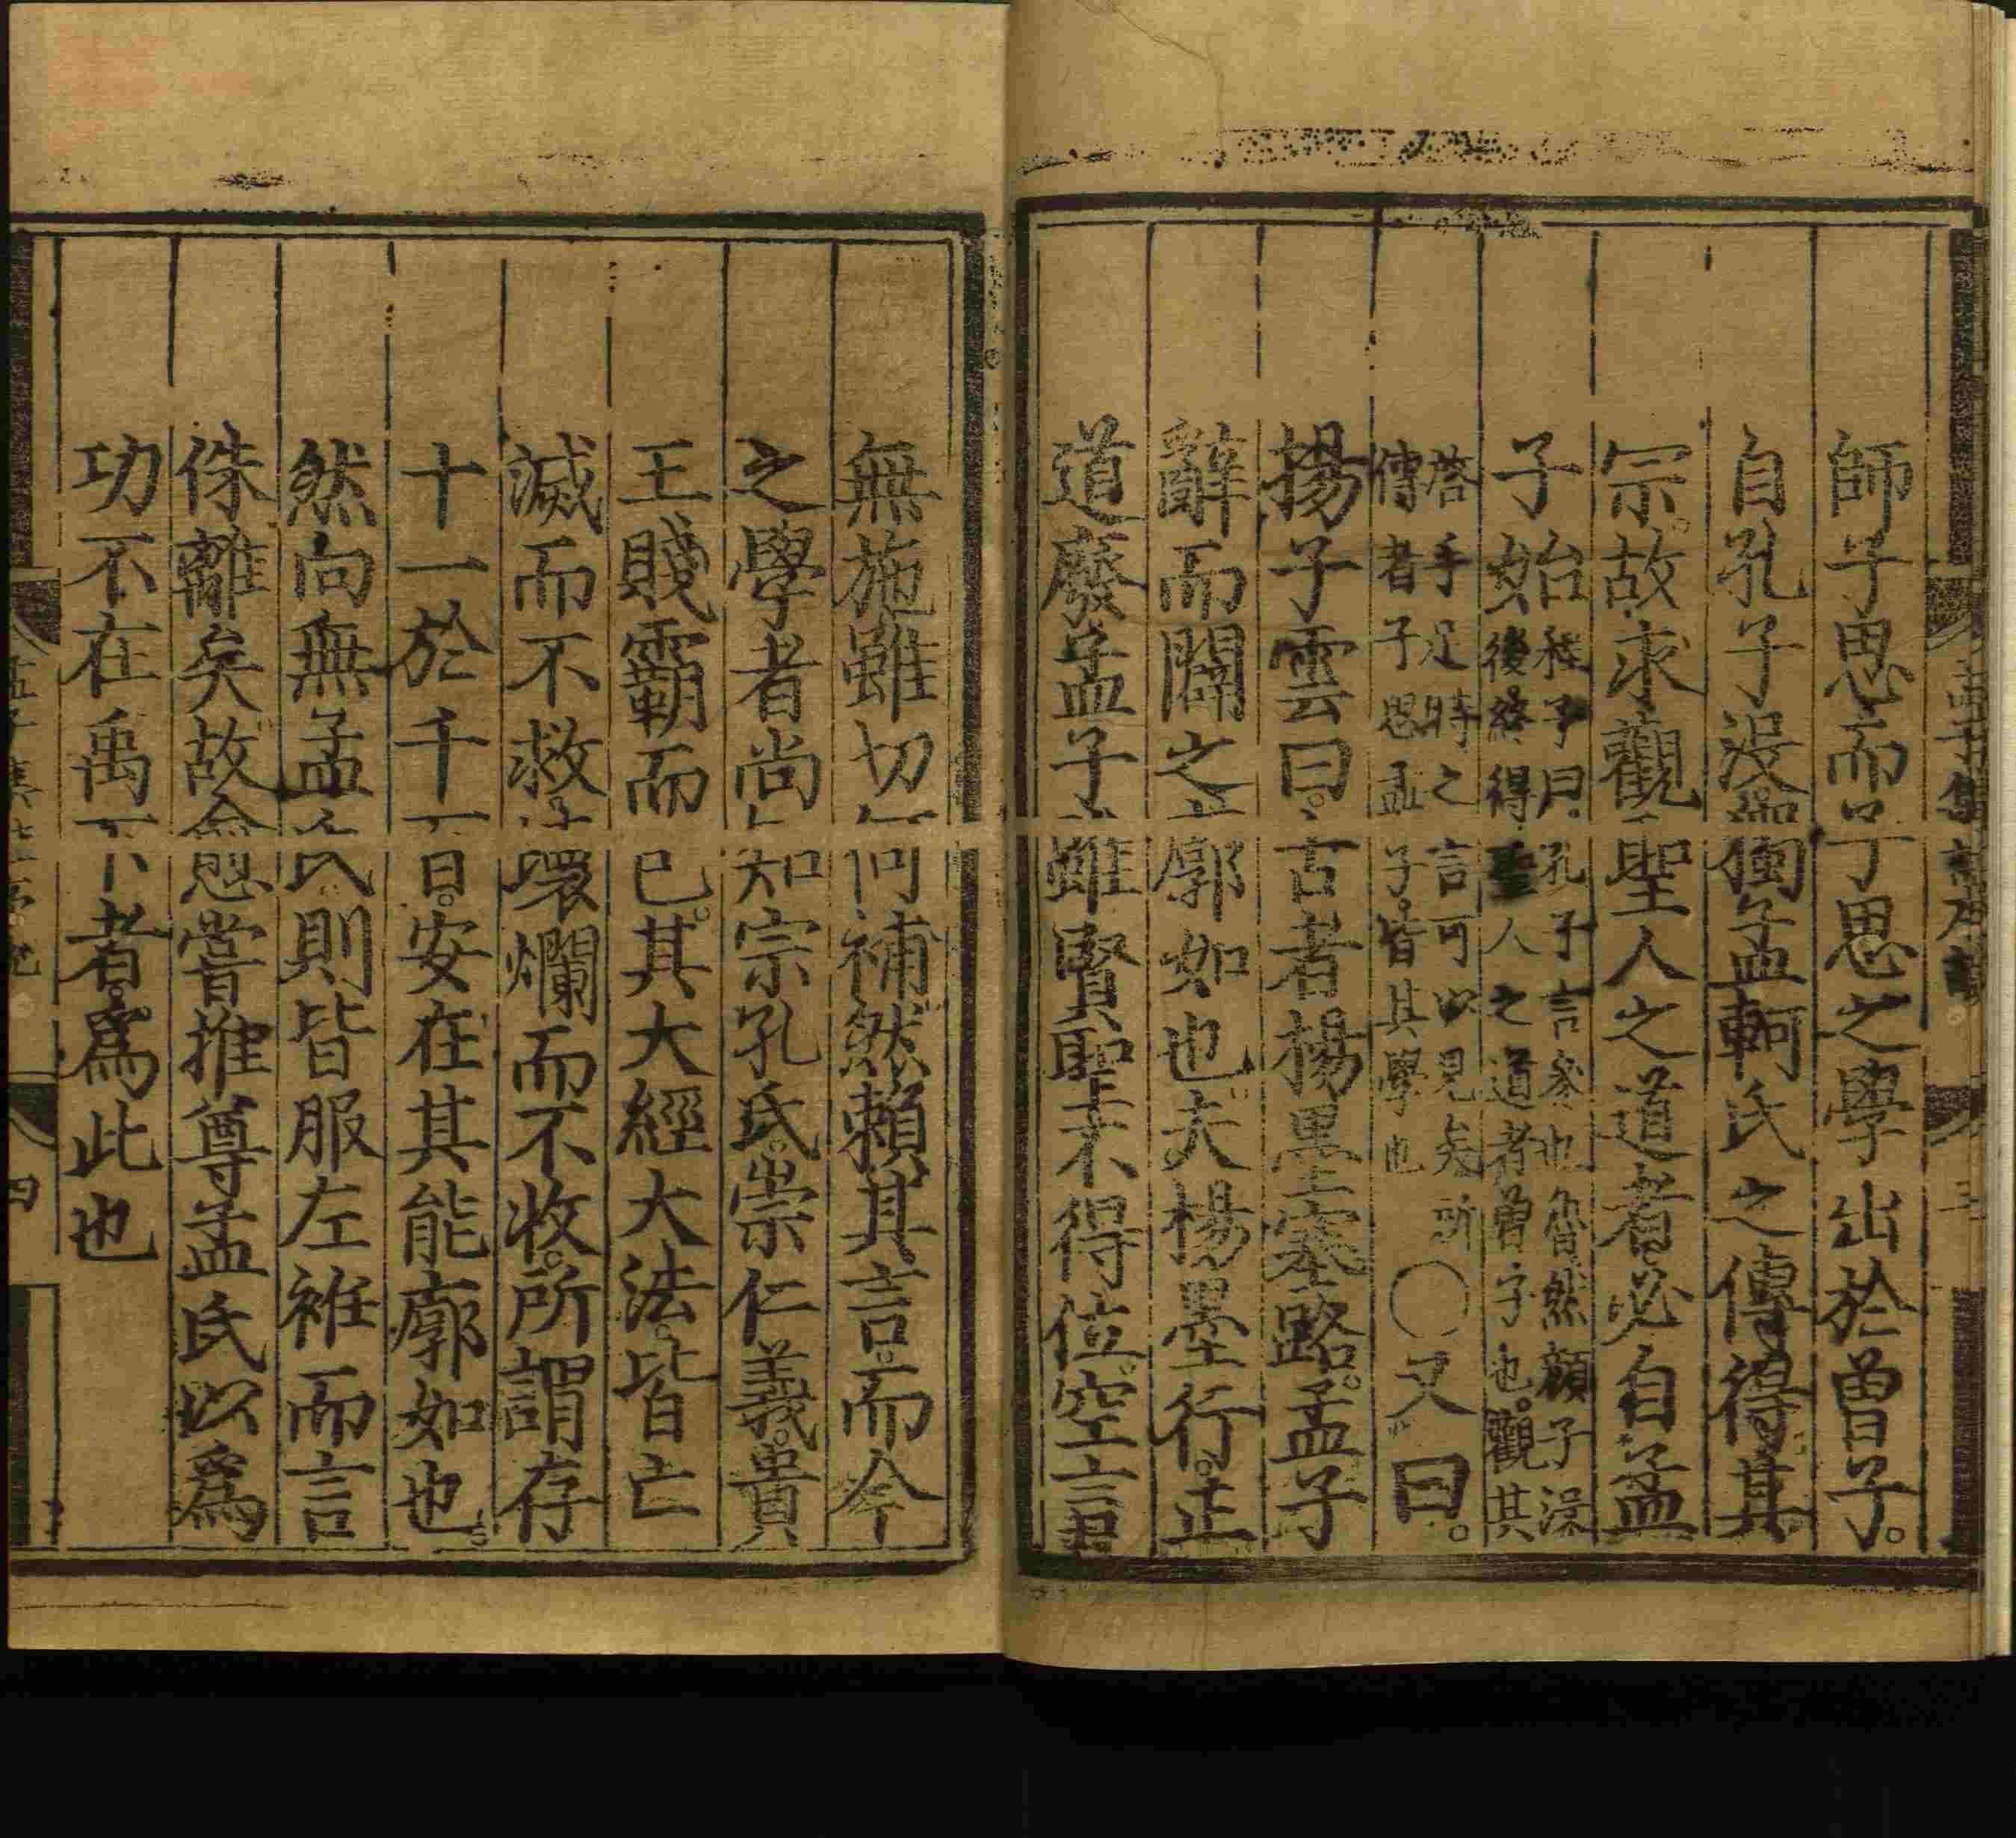 師子思而子思之學出於曾子。
自孔子沒獨孟軻氏之傳得其
宗。故求觀聖人之道者必自孟
子始
程子曰孔子言參也魯然顔子沒
後終得聖人之道者曾子也。觀其
啓手足時之言可以見矣所
傳者子思孟子。皆其學也
○又曰。
揚子雲曰。古者楊墨塞路。孟子
辭而闢之廓如也夫楊墨行。正
道廢孟子雖賢聖不得位。空言
無施雖切何補然賴其言。而今
之學者尚知宗孔氏。崇仁義。貴
王賤霸而已。其大經大法。皆亡
滅而不救壞爛而不收。所謂存
十一於千百。安在其能廓如也。
然向無孟氏則皆服左衽而言
侏離矣故愈嘗推尊孟氏以爲
功不在禹下者。爲此也
四